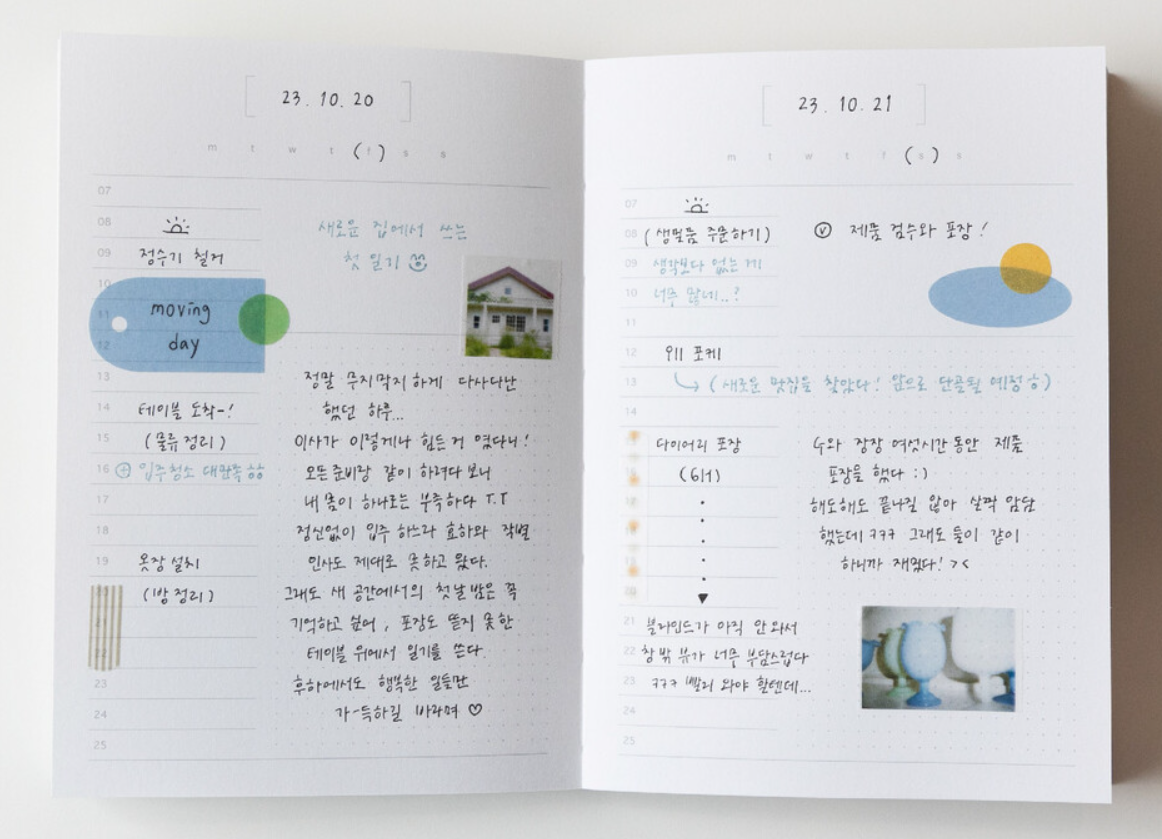 23. 10. 20
m t w t (f) s s
07
08
09 정수기 철거
10
11 moving
12 day
13
14 테이블 도착-!
15 (물류 정리)
16 ⊕ 입주청소 대만족 ㅎㅎ
17
18
19 옷장 설치
20 (방 정리)
22
23
24
25
새로운 집에서 쓰는
첫 일기
정말 무지막지하게 다사다난
했던 하루...
이사가 이렇게나 힘든 거 였다니!
모든 준비랑 같이 하려다 보니
내 몸이 하나로는 부족하다 T.T
정신없이 입주 하느라 효하와 작별
인사도 제대로 못하고 왔다.
그래도 새 공간에서의 첫날 밤은 꼭
기억하고 싶어, 포장도 뜯지 못한
테이블 위에서 일기를 쓴다.
후하에서도 행복한 일들만
가-득하길 바라며 ♡
23. 10. 21
m t w t f (s) s
07
08 (생필품 주문하기)
09 생각보다 없는 게
10 너무 많네..?
11
12 위 포케
13 (새로운 맛집을 찾았다! 앞으로 단골될 예정 ㅎ)
14
다이어리 포장
(6H)
21 블라인드가 아직 안 와서
22 창 밖 뷰가 너무 부담스럽다
23 ㅋㅋㅋ 빨리 와야 할텐데...
24
25
ⓥ 제품 검수와 포장!
와 장장 여섯시간 동안 제품
포장을 했다 :)
해도해도 끝나질 않아 살짝 암담
했는데 ㅋㅋㅋ 그래도 둘이 같이
하니까 재밌다! > <